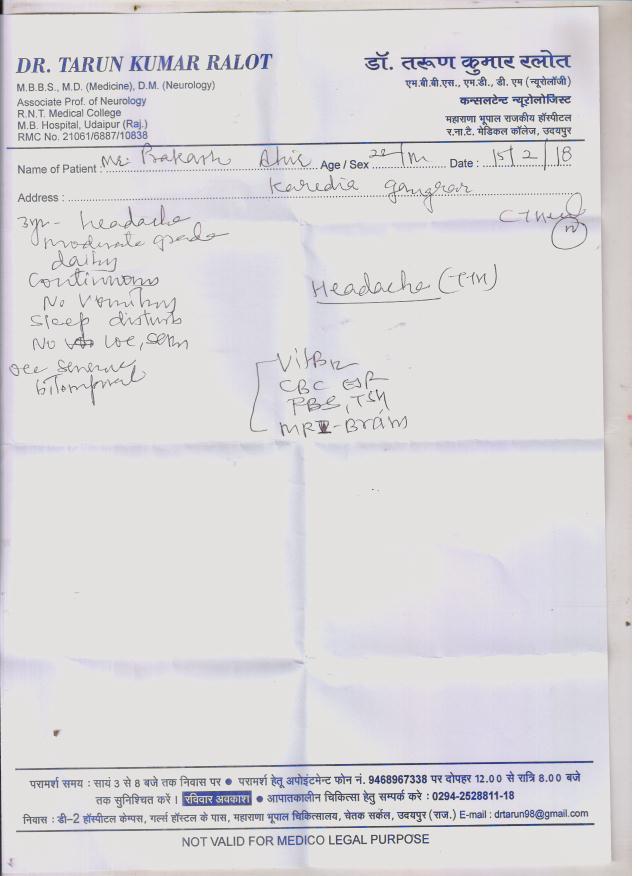 DR. TARUN KUMAR RALOT
M.B.B.S., M.D. (Medicine), D.M. (Neurology)
Associate Prof. of Neurology
R.N.T. Medical College
M.B. Hospital, Udaipur (Raj.)
RMC No. 21061/6887/10838
डॉ. तरूण कुमार रलोत
एम.बी.बी.एस., एम.डी., डी. एम (न्यूरोलॉजी)
कन्सलटेन्ट न्यूरोलोजिस्ट
महाराणा भूपाल राजकीय हॉस्पीटल
र.ना.टे. मेडिकल कॉलेज, उदयपुर
Name of Patient : Mr. Prakash Age / Sex /m Date : 15/2/18
Address : Karedia gangrar
3yr - headache
moderate grade
daily
Continuous
No Vomiting
Sleep disturb
No LOC,
bitemporal
Headache
Vit B12
CBC ESR
FBS, TSH
MRI - Brain
परामर्श समय : सायं 3 से 8 बजे तक निवास पर ● परामर्श हेतू अपोइंटमेन्ट फोन नं. 9468967338 पर दोपहर 12.00 से रात्रि 8.00 बजे
तक सुनिश्चित करें । रविवार अवकाश ● आपातकालीन चिकित्सा हेतु सम्पर्क करे : 0294-2528811-18
निवास : डी–2 हॉस्पीटल केम्पस, गर्ल्स हॉस्टल के पास, महाराणा भूपाल चिकित्सालय, चेतक सर्कल, उदयपुर (राज.) E-mail : drtarun98@gmail.com
NOT VALID FOR MEDICO LEGAL PURPOSE